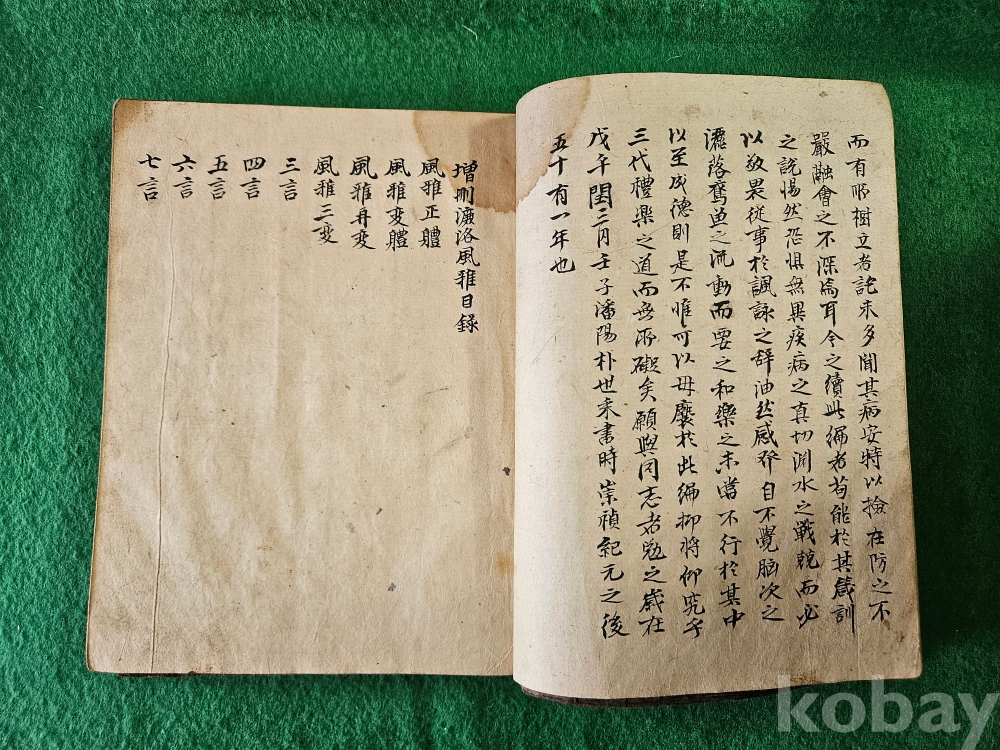 而有所樹立者詫未多聞其病安特以撿在防之不
嚴融會之不深焉耳今之續此編者苟能於其箴訓
之說惕然恐惧無異疾病之真切淵水之戰兢而必
以敬畏從事於諷詠之辞油然感發自不覺脑次之
灑落鸢鱼之流動而要之和樂之未嘗不行於其中
以至成德則是不惟可以毋驟於此編抑將仰究乎
三代禮樂之道而無所礙矣願與同志者勉之歲在
戊午閏三月壬子潘陽朴世采書時崇禎紀元之後
五十有一年也
增刪濂洛風雅目錄
風雅正體
風雅变體
風雅再变
風雅三变
三言
四言
五言
六言
七言
kobay